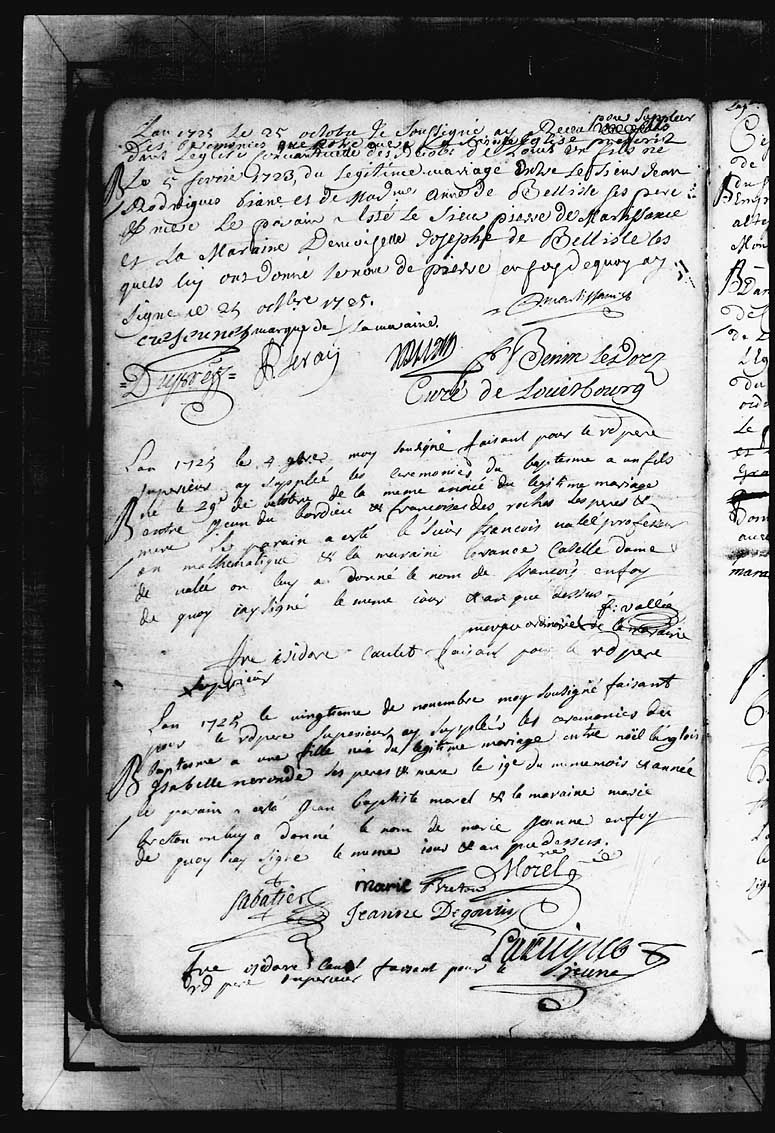 Lan 1725 le 25 octobre Je Soussigné ay pour suppleer
Les ceremonies que notre mere la Sainte Eglise prescrit
dans leglise de Louis un fils né
B Le 5 fevrie 1723 du Legitime mariage Entre le Sieur Jean
Rodrigues Diane et de Madme Anne de Bellisle ses pere
& mere Le parain a Esté Le Sieur pierre de Martissance
et La Maraine Demoiselle Josephe de Bellisle les
quels luy ont donné le nom de pierre en foy de quoy ay
Signe le 25 octbre 1725.
Martissance
marque de la maraine
Duprés
F Benin Le Dorz
Curé de Louisbourg
Lan 1725 le 4 9bre moy sousigné faisant pour le rd pere
superieur ay supplié les ceremonies du baptesme a un fils
né le 29e de octobre de la meme année du legitime mariage
B entre jean du bordieu & francoise des roches ses peres &
mere le parain a esté le Sieur francois vallée professeur
en mathematique & la maraine Caselle dame
de vallée on luy a donné le nom de francois en foy
de quoy iay signé le meme iour & an que dessus
f. vallée
marque ordinaire de la maraine
fre isidore Caulet faisant pour le rd pere
superieur
Lan 1725 le vingtieme de novembre moy sousigné faisant
pour le rd pere superieur ay supplée les ceremonies du
baptesme a une fille née du legitime mariage entre noël langlois
B Isabelle neronde ses peres & mere le 19e du meme mois & année
le parain a esté Jean baptiste morel & la maraine marie
breton on luy a donné le nom de marie Jeanne en foy
de quoy iay signe le meme iour & an que dessus.
Morel
Sabatier
marie Breton
Jeanne Degoutin
Lartigue
jeune
fre isidore Caulet faisant pour le
rd pere superieur